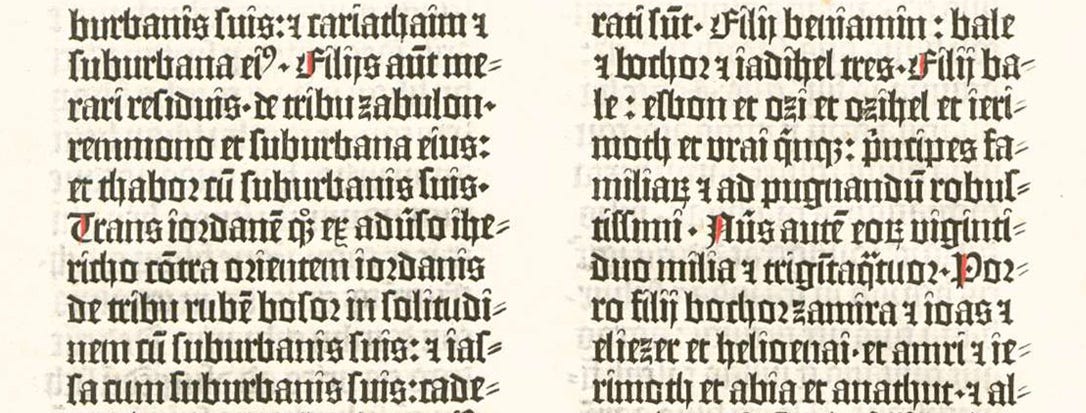 burbanis suis: ⁊ cariathaim ⁊
suburbana eiꝰ. Filijs aūt me-
rari residuis. de tribu zabulon.
remmono et suburbana eius:
et thabor cū suburbanis suis.
Trans iordanē qꝫ ex adūso ihe-
richo cōtra orientem iordanis
de tribu rubē bosor in solitudi-
nem cū suburbanis suis: ⁊ ias-
sa cum suburbanis suis: cade-
rati sūt. Filij beniamin: bale
⁊ bochor ⁊ iadihel tres. Filij ba-
le: esbon et ozi et ozihel et ieri-
moth et vrai q̄nqꝫ: p̄ncipes fa-
miliaꝝ ⁊ ad pugnandū robus-
tissimi. Nūs autē eoꝝ viginti-
duo milia ⁊ trigītaq̄tuor. Por-
ro filij bochor zamira ⁊ ioas ⁊
eliezer et helioenai. et amri ⁊ ie-
rimoth et abia et anathut. ⁊ al-